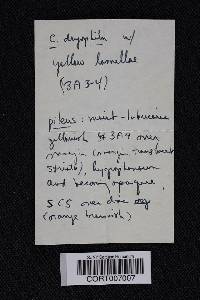 C. dryophila w/
yellow lamellae
(3A3-4)
pileus: moist - lubricous
yellowish 3A4 over
margin (margin translucent
striate), hygrophanous
and becoming opaque,
5C5 over disc
(orange brownish)
CORT007067